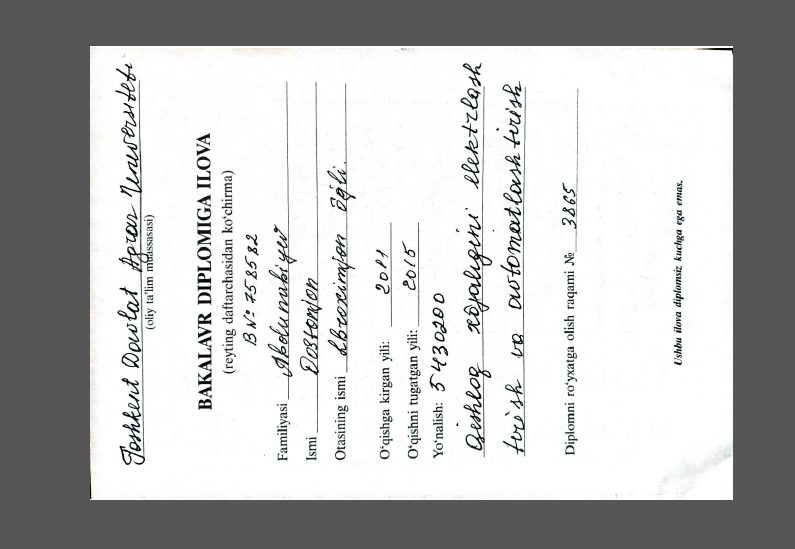 Toshkent Davlat Agrar Universiteti
(oliy ta'lim muassasasi)
BAKALAVR DIPLOMIGA ILOVA
(reyting daftarchasidan ko'chirma)
B № 758582
Familiyasi Abdunabiyev
Ismi Dostonjon
Otasining ismi Ibroximjon o'g'li.
O'qishga kirgan yili: 2011
O'qishni tugatgan yili: 2015
Yo'nalish: 5430200
Qishloq xo'jaligini elektrlash
tirish va avtomatlashtirish
Diplomni ro'yxatga olish raqami № 3865
Ushbu ilova diplomsiz kuchga ega emas.